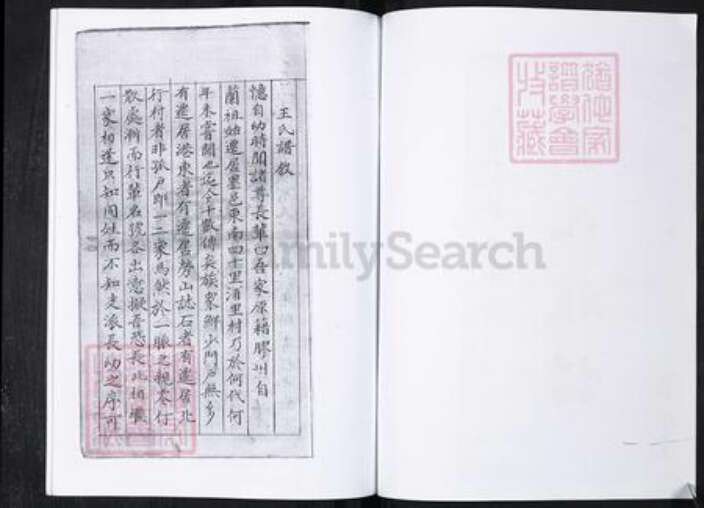 王氏譜敘
憶自幼時聞諸尊長輩曰吾家原籍膠州自
蘭祖始遷居墨邑東南四十里酒里村乃於何代何
年未嘗聞也迄今十數傳矣族寡鮮少門戶無多
有遷居港東者有遷居勞山誌石者有遷居北
行村者非孤戶即一二家焉然於一脈之親
處漸而行輩名號各出意擬吾恐長此相
一家相逢只知同姓而不知支派長幼之序可
FamilySearch
譜學會
收藏